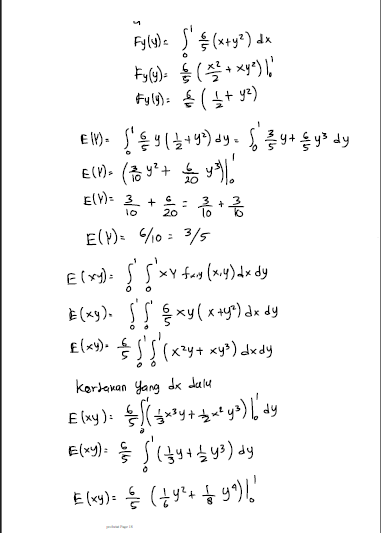 Fy(y)= ∫₀¹ 6/5 (x+y²) dx
Fy(y)= 6/5 (x²/2 + xy²)|₀¹
Fy(y)= 6/5 (1/2 + y²)
E(Y)= ∫₀¹ 6/5 y (1/2 + y²) dy = ∫₀¹ 3/5 y + 6/5 y³ dy
E(Y)= (3/10 y² + 6/20 y³)|₀¹
E(Y)= 3/10 + 6/20 = 3/10 + 3/10
E(Y)= 6/10 = 3/5
E(xy)= ∫₀¹ ∫₀¹ xy fx,y (x,y) dx dy
E(xy)= ∫₀¹ ∫₀¹ 6/5 xy (x+y²) dx dy
E(xy)= 6/5 ∫₀¹ ∫₀¹ (x²y + xy³) dx dy
Kerjakan yang dx dulu
E(xy)= 6/5 ∫₀¹ (1/3 x³y + 1/2 x² y³)|₀¹ dy
E(xy)= 6/5 ∫₀¹ (1/3 y + 1/2 y³) dy
E(xy)= 6/5 (1/6 y² + 1/8 y⁴)|₀¹